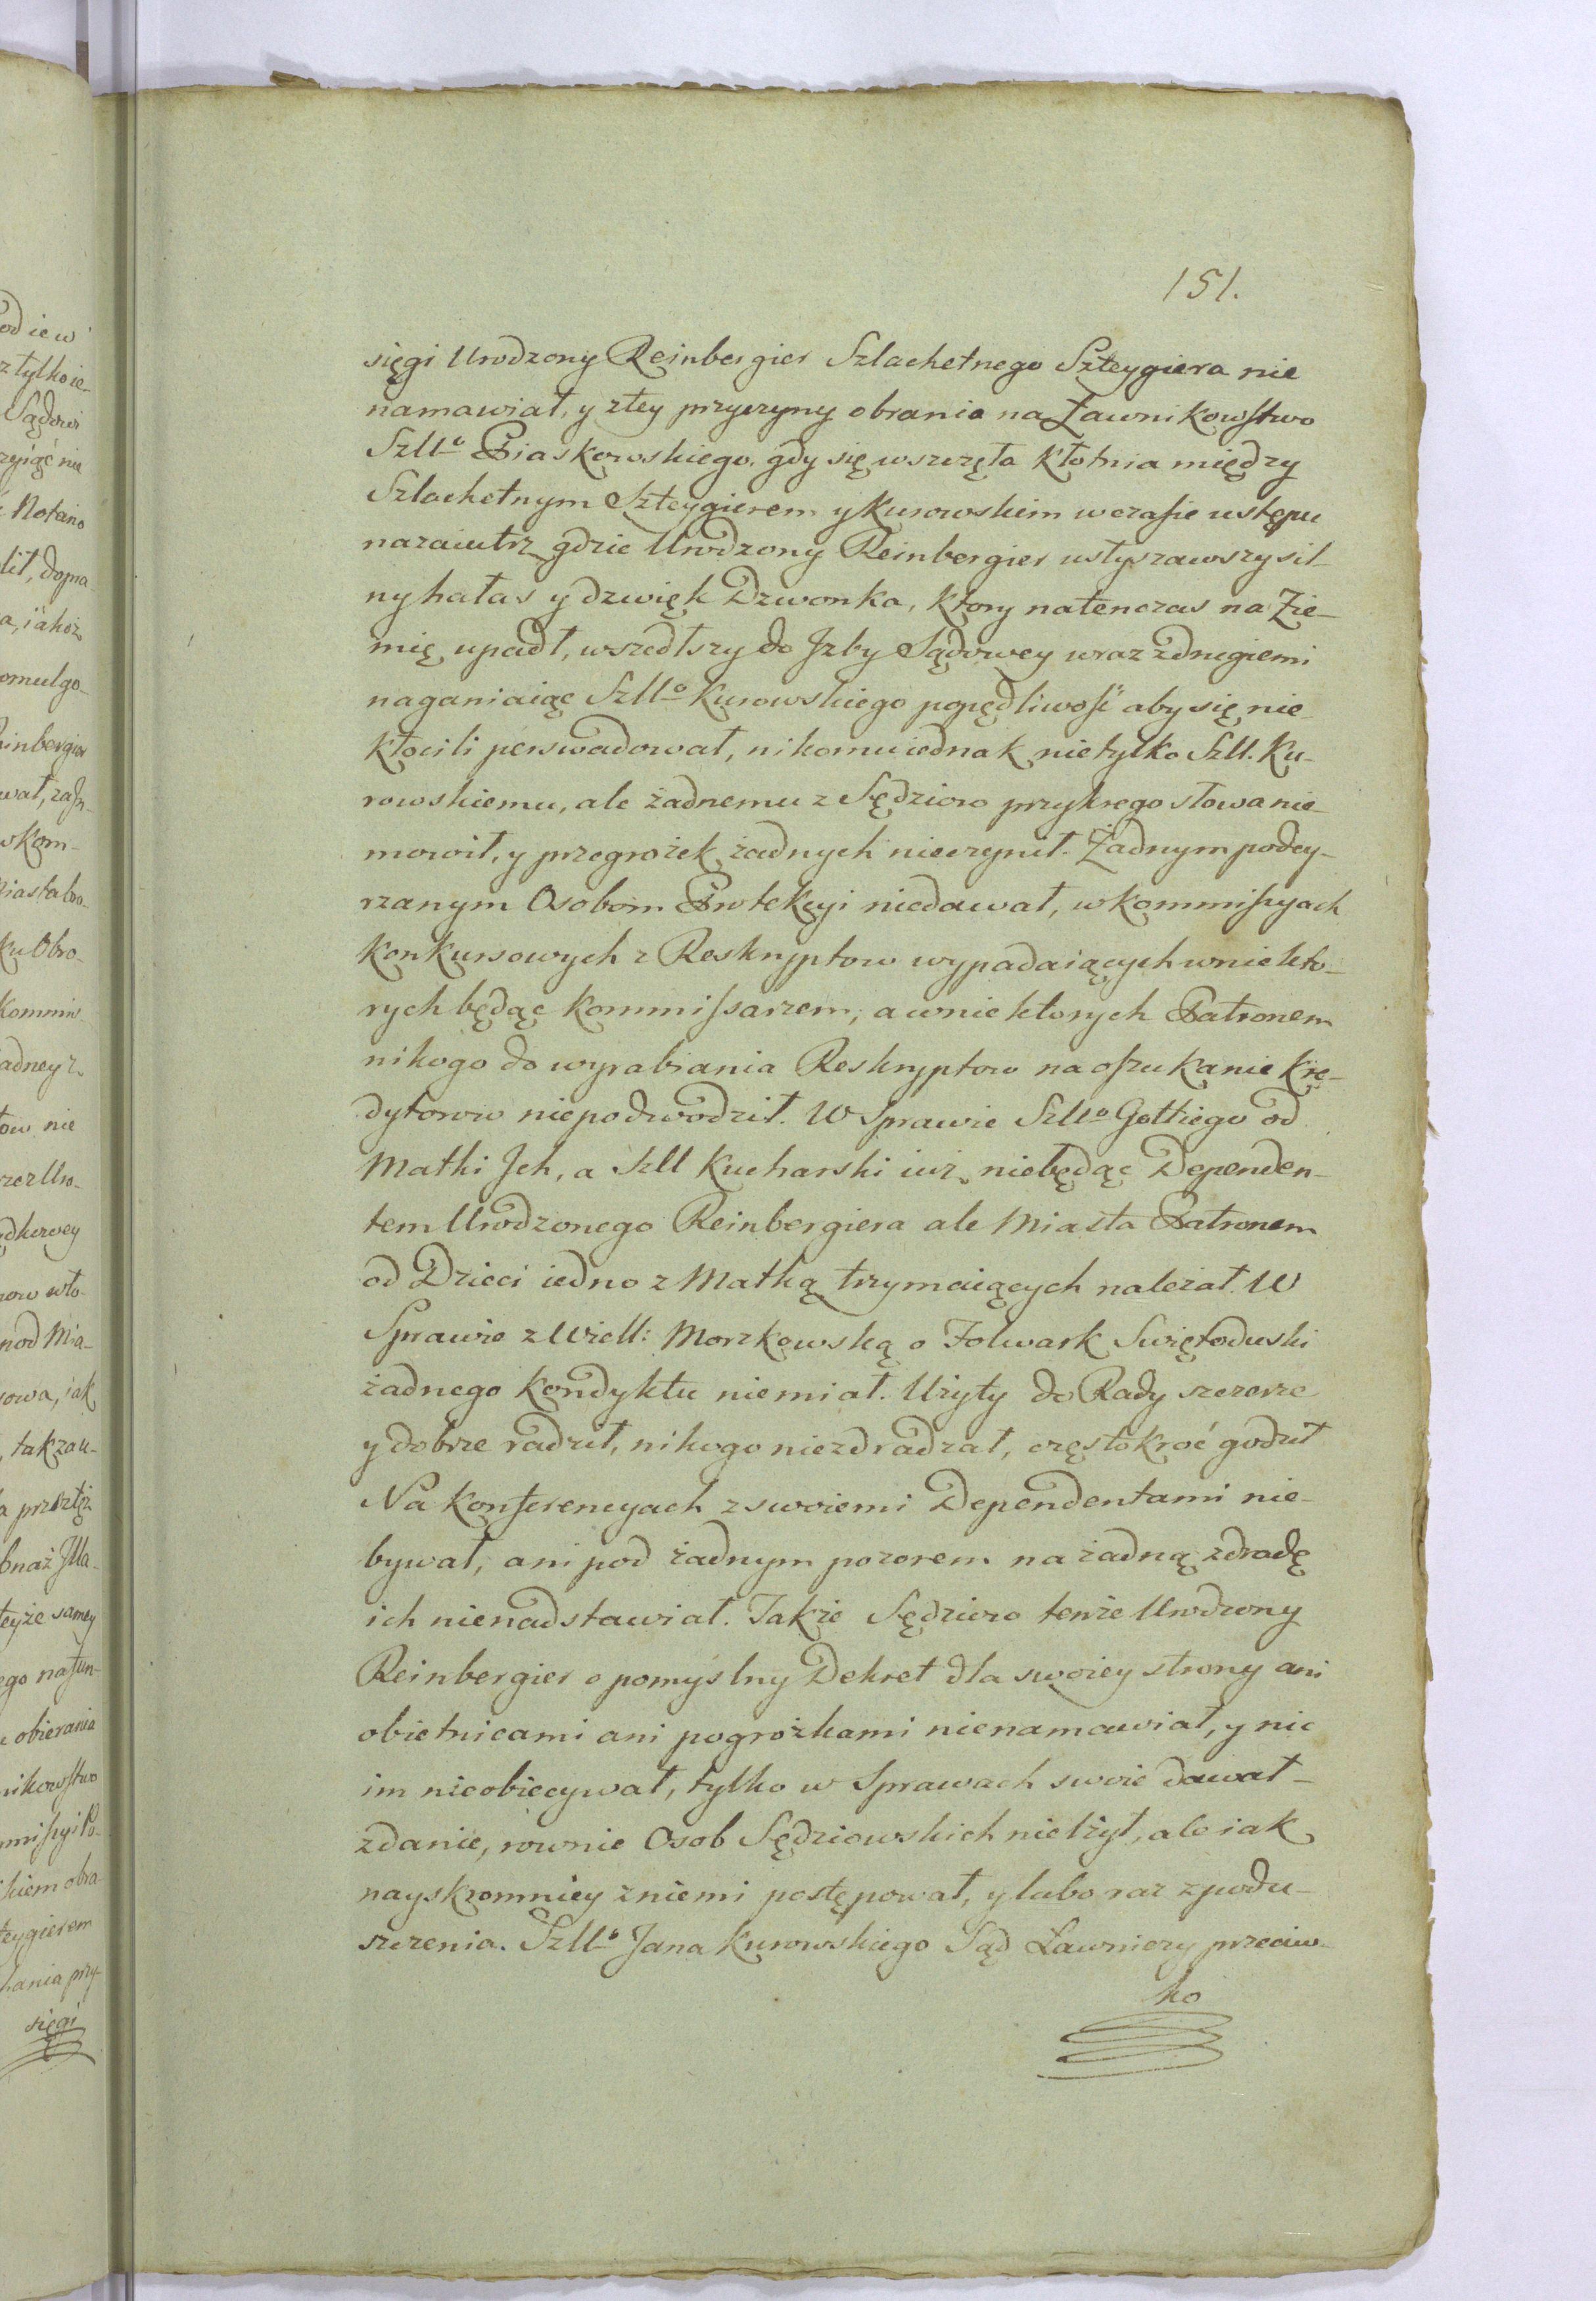 151.
sięgi Urodzony Reinbergier Szlachetnego Szteygiera nie
namawiał, y ztey przyczyny obrania na Ławnikowstwo
Szll<sup>o</sup> Piaskowskiego. gdy się wszczęła kłotnia między
Szlachetnym Szteygierem y Kurowskim w czasie ustępu
nazaiutrz gdzie Urodzony Reinbergier usłyszawszy sil-
ny hałas y dzwięk Dzwonka, ktory natenczas na Zie-
mię upadł, wszedłszy do Jzby Sądowey wraz zdrugiemi
naganiaiąc Szll<sup>o</sup> Kurowskiego popędliwość aby się nie
kłocili perswadował, nikomu iednak nietylko Szll. Ku-
rowskiemu, ale żadnemu z Sędziow przykrego słowa nie-
mowił, y przegrożek żadnych nieczynił. Żadnym podey-
rzanym Osobom Protekcyi niedawał, w Kommissyach
Konkursowych z Reskryptow wypadaiących wniekto-
rych będąc Kommissarzem, a wniektorych Patronem
nikogo do wyrabiania Reskryptow na oszukanie Kre-
dytorow niepodwodził. W Sprawie Szll<sup>o</sup> Gottiego od
Matki Jch, a Szll Kucharski iuż niebędąc Dependen-
tem Urodzonego Reinbergiera ale Miasta Patronem
od Dzieci iedno z Matką trzymaiących należał. W
Sprawie z Wiell: Morzkowską o Folwark Swiętoduski
żadnego Kondyktu niemiał. Użyty do Rady szczerze
y dobrze radził, nikogo niezdradzał, częstokroć godził
Na Konferencyach z swoiemi Dependentami nie-
bywał, ani pod żadnym pozorem na żadną zdradę
ich nienadstawiał. Także Sędziow tenże Urodzony
Reinbergier o pomyślny Dekret dla swoiey strony ani
obietnicami ani pogrożkami nienamawiał, y nic
im nieobiecywał, tylko w Sprawach swoie dawał
zdanie, rownie Osob Sędziowskich nielżył, ale iak
nayskromniey zniemi postępował, y lubo raz z podu-
szczenia. Szll<sup>o</sup> Jana Kurowskiego Sąd Ławniczy przeciw-
ko